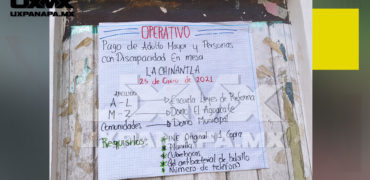 UXMX
UXPANAPA.MX
OPERATIVO
Pago de Adulto Mayor y Personas
con Discapacidad En mesa
LA CHINANTLA
25 de Enero de 2021
A - L → Escuela Leyes de Reforma
M - Z → Domo El Aguacate
Comunidades → Domo Municipal
Requisitos: INE Original y Copia
Plumilla
Cubrebocas
Gel antibacterial de bolsillo
Número de teléfono
UXPANAPA.MX